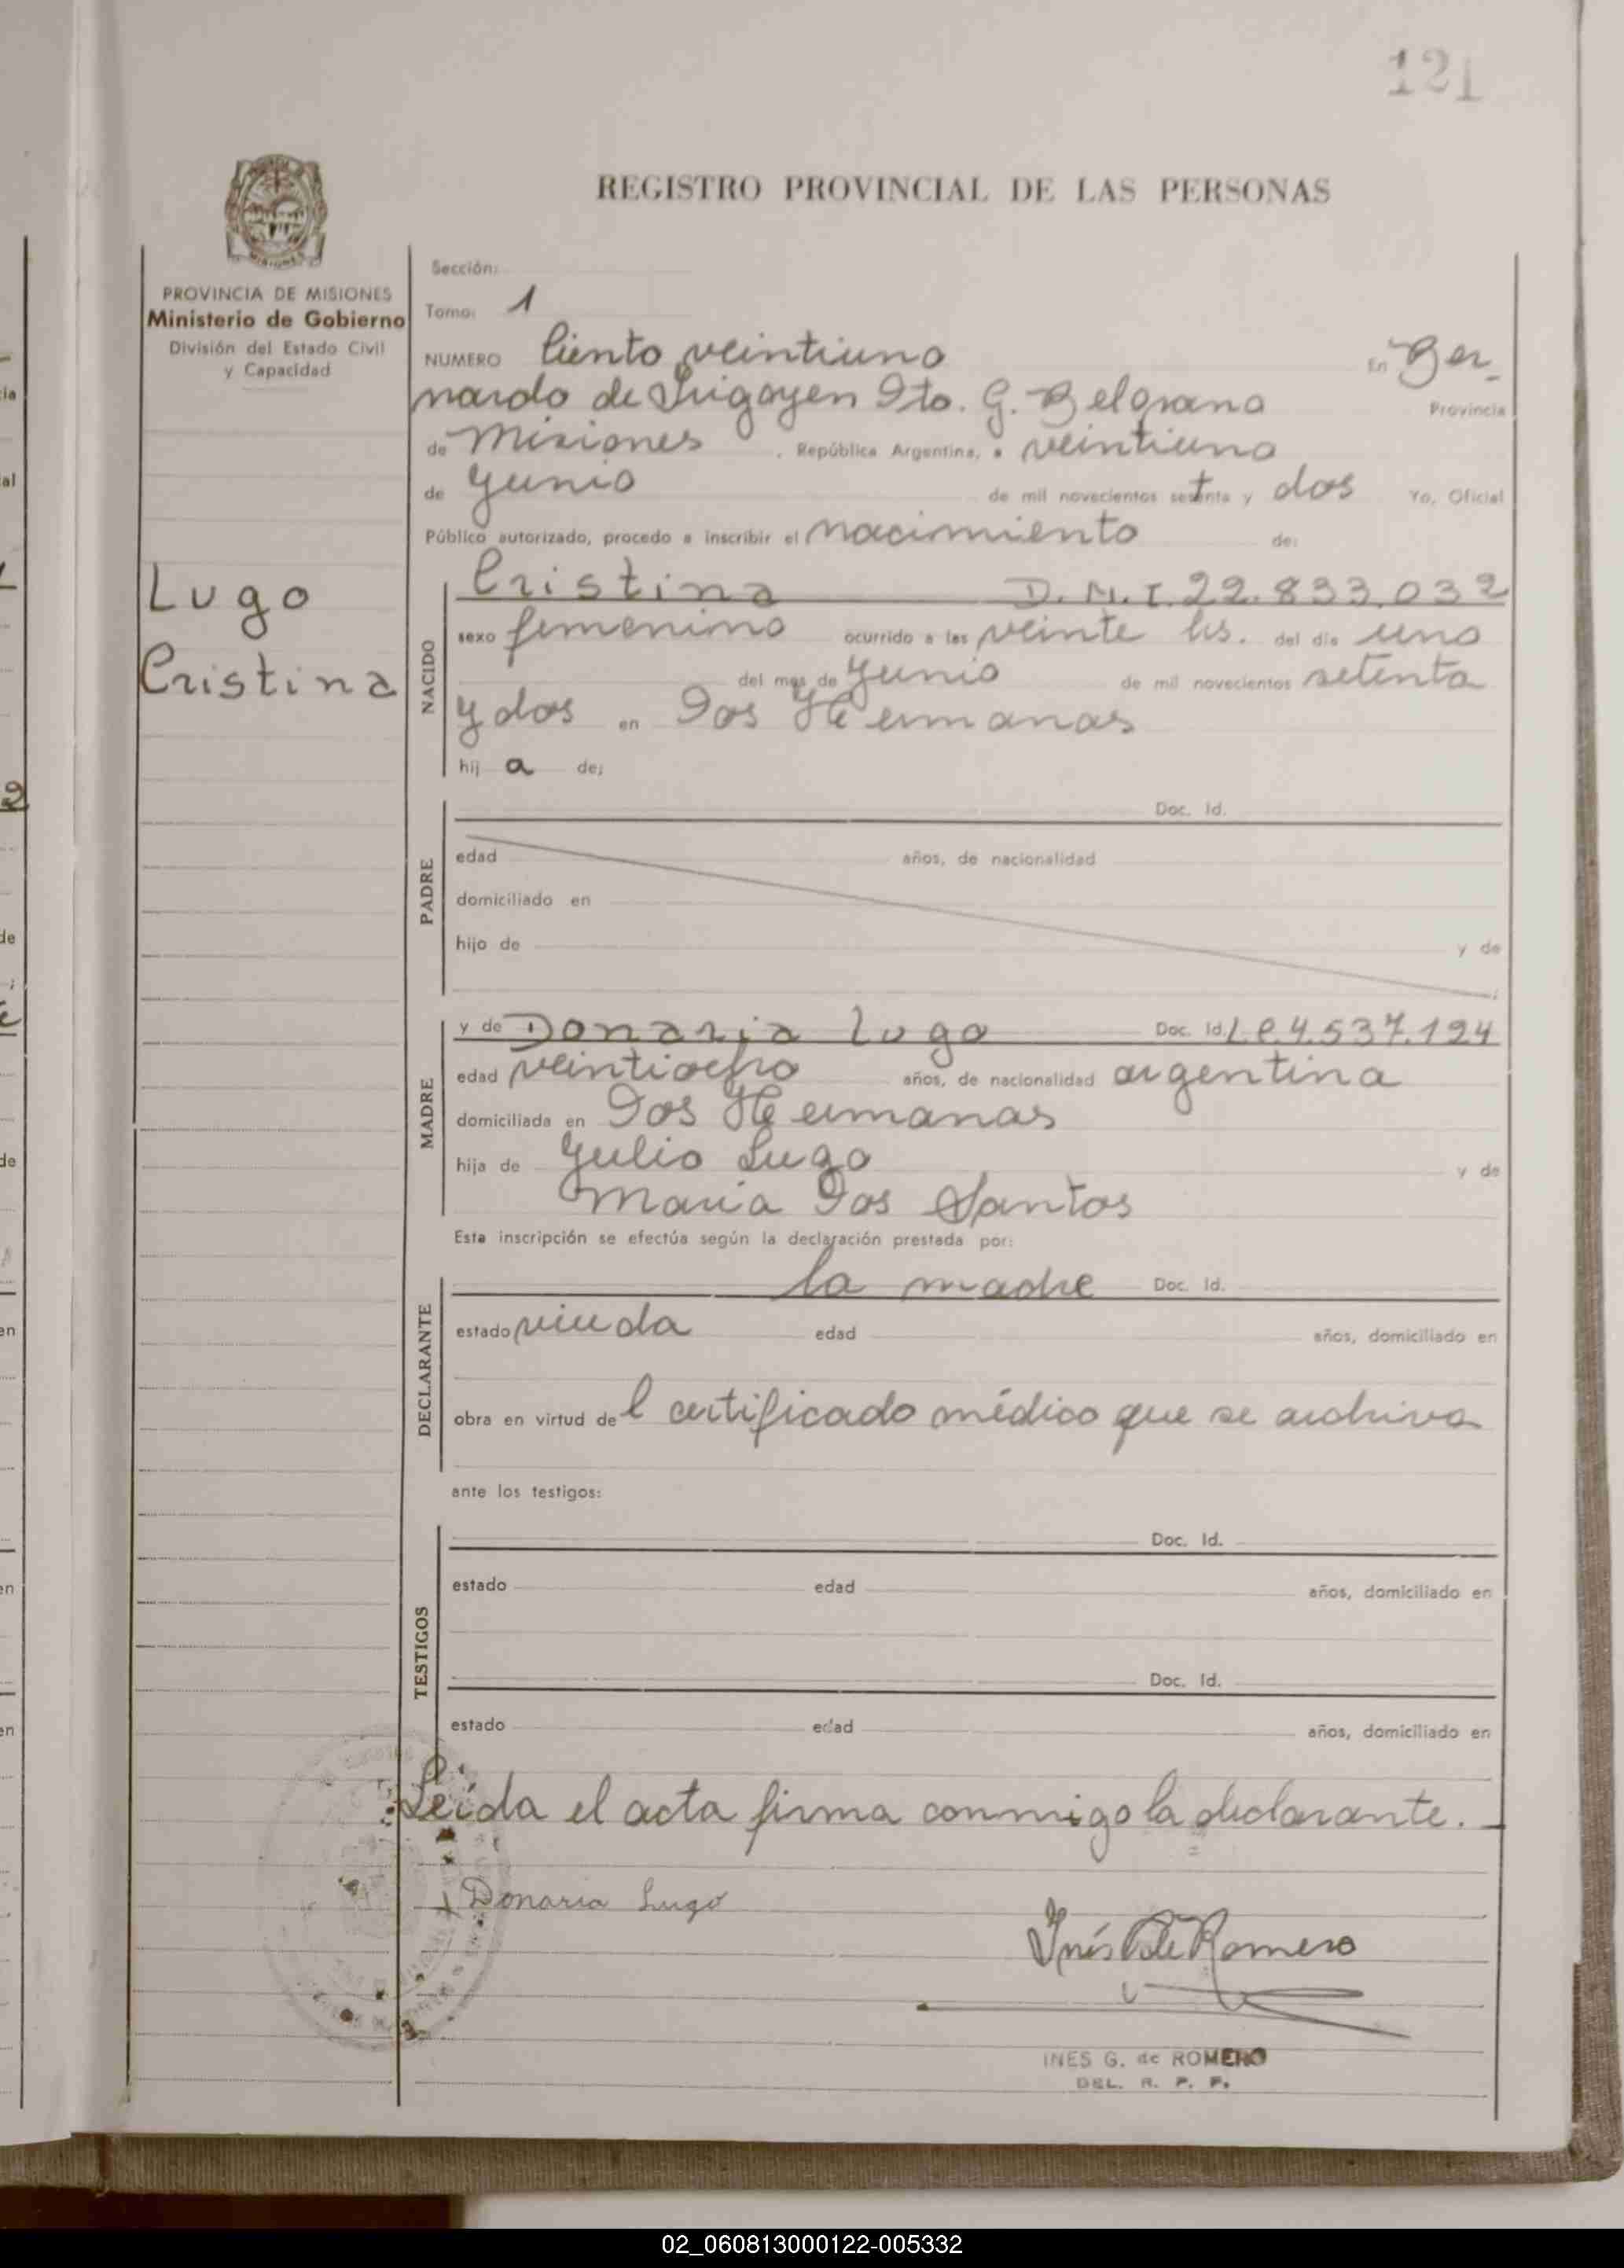 121
REGISTRO PROVINCIAL DE LAS PERSONAS
PROVINCIA DE MISIONES
Ministerio de Gobierno
División del Estado Civil
y Capacidad
Lugo
Cristina
Sección:
Tomo: 1
NUMERO Ciento veintiuno En Ber-
nardo de Irigoyen Dto. G. Belgrano Provincia
de Misiones, República Argentina, a veintiuno
de Junio de mil novecientos setenta y dos Yo, Oficial
Público autorizado, procedo a inscribir el nacimiento de:
NACIDO
Cristina D.N.I. 22.833.032
sexo femenino ocurrido a las veinte hs. del día uno
del mes de Junio de mil novecientos setenta
y dos en Dos Hermanas
hij a de;
PADRE
Doc. Id.
edad años, de nacionalidad
domiciliado en
hijo de y de
MADRE
y de Donaria Lugo Doc. Id. L.C. 4.537.124
edad veintiocho años, de nacionalidad argentina
domiciliada en Dos Hermanas
hija de Julio Lugo y de
Maria Dos Santos
Esta inscripción se efectúa según la declaración prestada por:
DECLARANTE
la madre Doc. Id.
estado viuda edad años, domiciliado en
obra en virtud del certificado médico que se archiva
ante los testigos:
TESTIGOS
Doc. Id.
estado edad años, domiciliado en
Doc. Id.
estado edad años, domiciliado en
Leída el acta firma conmigo la declarante.
Donaria Lugo
Inés G de Romero
INES G. de ROMERO
DEL. R. P. P.
02_060813000122-005332